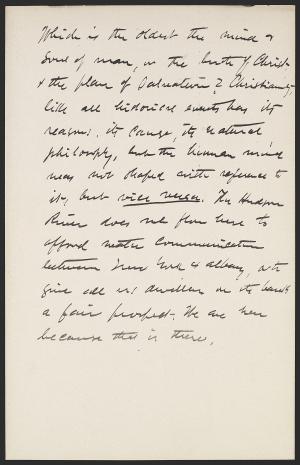 Which is the oldest the mind &
Soul of man, or the birth of Christ
& the plan of Salvation? Christianity,
like all historical events has its
reasons: its cause, its natural
philosophy, but the human mind
was not shaped with reference to
it, but vice versa. The Hudson
River does not flow here to
afford water communication
between New York & Albany, or to
give all us dwellers on its banks
a fair prospect. We are here
because that is there.